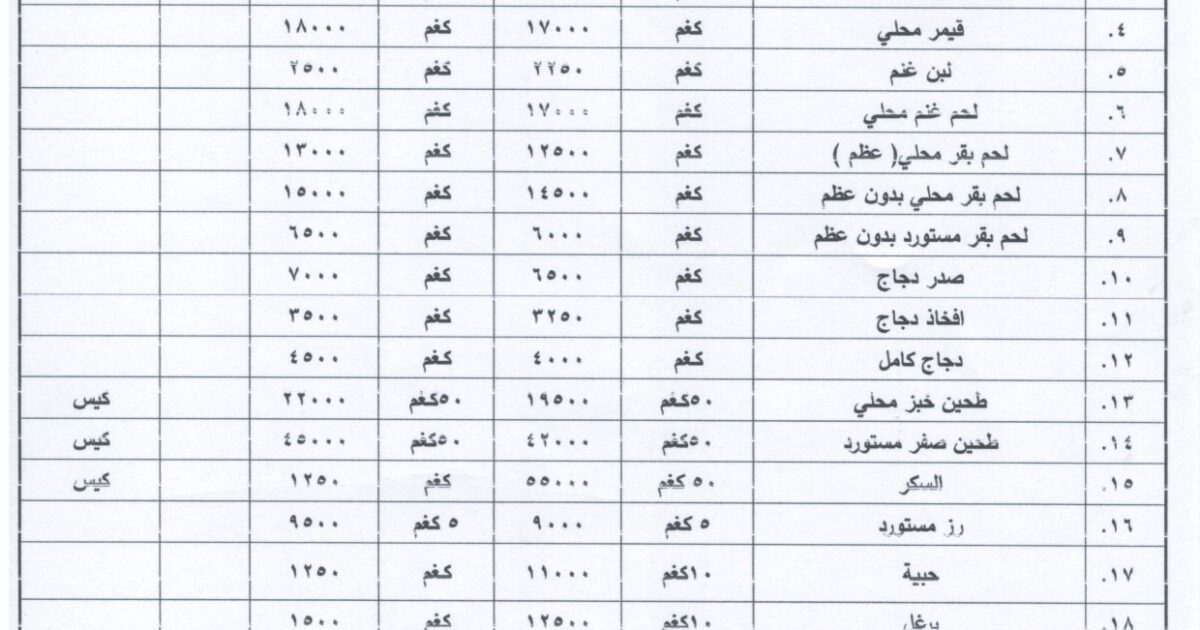 ٤. قيمر محلي كغم ١٧٠٠٠ كغم ١٨٠٠٠
٥. لبن غنم كغم ٢٢٥٠ كغم ٢٥٠٠
٦. لحم غنم محلي كغم ١٧٠٠٠ كغم ١٨٠٠٠
٧. لحم بقر محلي( عظم ) كغم ١٢٥٠٠ كغم ١٣٠٠٠
٨. لحم بقر محلي بدون عظم كغم ١٤٥٠٠ كغم ١٥٠٠٠
٩. لحم بقر مستورد بدون عظم كغم ٦٠٠٠ كغم ٦٥٠٠
١٠. صدر دجاج كغم ٦٥٠٠ كغم ٧٠٠٠
١١. افخاذ دجاج كغم ٣٢٥٠ كغم ٣٥٠٠
١٢. دجاج كامل كغم ٤٠٠٠ كغم ٤٥٠٠
١٣. طحين خبز محلي ٥٠كغم ١٩٥٠٠ ٥٠كغم ٢٢٠٠٠ كيس
١٤. طحين صفر مستورد ٥٠كغم ٤٢٠٠٠ ٥٠كغم ٤٥٠٠٠ كيس
١٥. السكر ٥٠ كغم ٥٥٠٠٠ كغم ١٢٥٠ كيس
١٦. رز مستورد ٥ كغم ٩٠٠٠ ٥ كغم ٩٥٠٠
١٧. حبية ١٠كغم ١١٠٠٠ كغم ١٢٥٠
١٨. برغل ١٠كغم ١٢٥٠٠ كغم ١٥٠٠